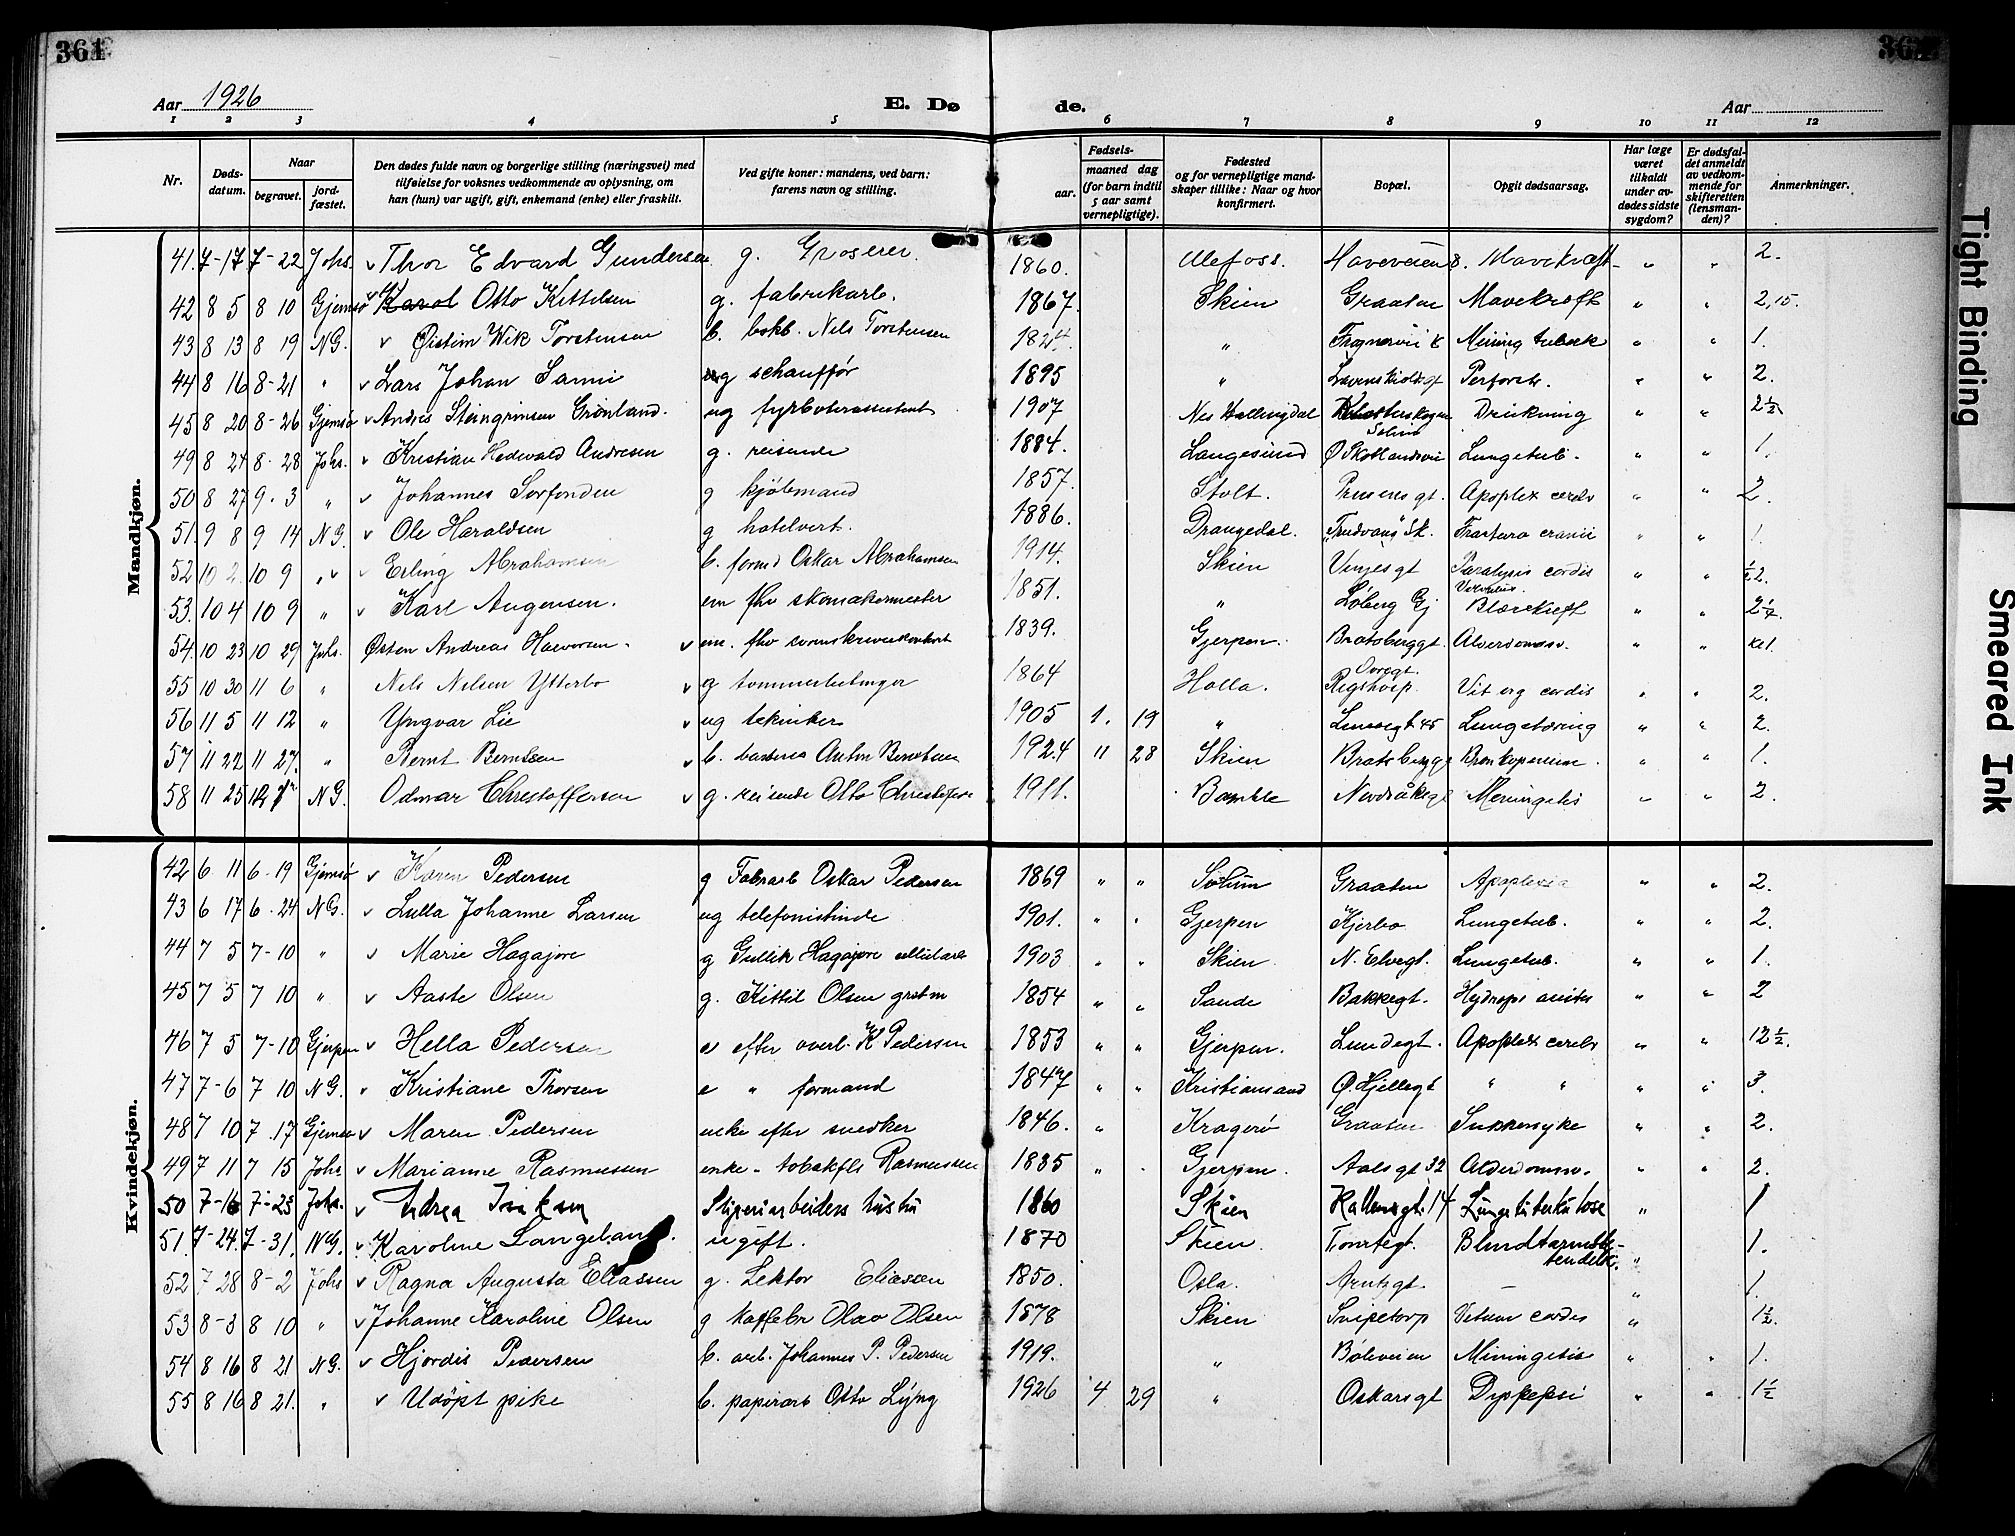 361
Aar 1926
E. Dø
de.
Aar
1 2 3 4 5 6 7 8 9 10 11 12
Nr.
Døds-
datum.
Naar
begravet.
jord-
fæstet.
Den dødes fulde navn og borgerlige stilling (næringsvei) med
tilføielse for voksnes vedkommende av oplysning, om
han (hun) var ugift, gift, enkemand (enke) eller fraskilt.
Ved gifte koner: mandens, ved barn:
farens navn og stilling.
aar.
Fødsels-
maaned dag
(for barn indtil
5 aar samt
vernepligtige).
Fødested
og for vernepligtige mand-
skaper tillike: Naar og hvor
konfirmert.
Bopæl.
Opgit dødsaarsag.
Har læge
været
tilkaldt
under av-
dødes sidste
sygdom?
Er dødsfal-
det anmeldt
av vedkom-
mende for
skifteretten
(lensman-
den)?
Anmerkninger.
Mandkjøn.
41. 7-17 7-22 Johs. v Thor Edvard Gundersen g. Groserer. 1860. Ulefoss. Haveveien 8. Mavekræft " " 2.
42 8 5 8 10 Gjemsø v Karol Otto Kittelsen g. fabrikarb. 1867. Skien Graaten Mavekreft " " 2,15.
43 8 13 8 19 NG. v Øistein Wik Torstensen b. bokb. Nels Torstensen 1824. " " " 1.
44 8 16 8-21 " v Lars Johan Sanni ug schauffør 1895 " Løvenskioldsgt Perforats. " " 2.
45 8 20 8-26 Gjemsø v Andres Steingrimsen Grønland. ug fyrbøterassistent 1907 Nes Hallingdal Klosterskogen Drukning " " 2½
49 8 24 8-28 Johs. v Kristian Hedevald Andresen g. reisende 1884. Langesund Ø Skotlandsvei Lungetub. " " 1.
50 8 27 9-3 " v Johannes Sorfonden g kjøbmand 1857. Stolt. Prinsensgt. Apoplex cerebr " " 2.
51 9 8 9 14 NG. v Ole Haraldsen g hotelvert. 1886. Drangedal. "Trudvang" Sk. Fractura cranii " " 1.
52 10 2. 10 9 " v v Erling Abrahamsen b. formd Oskar Abrahamsen 1914. Skien Vinjesgt Paralysis cordis " " ½.
53. 10 4 10 9 " v Karl Augensen. em fhv skomakermester 1851. " Løberg Gj Blærekreft " " 2½.
54. 10 23 10 29 Johs. Østen Andreas Halvorsen. v em. fhv 1839. Gjerpen. Bratsberggt. Alderdomssv. " "
55 10 30 11 6 " Nils Nilsen Ytterbø v g tømmerhugger 1864 Holla. Vit org cordis " " 2.
56 11 5 11 12 " Yngvar Lie v ug tekniker 1905 1. 19 " 45 Lungetæring " " 2.
57 11 22 11 27. " Bernt Berntsen v b. Anton Berntsen 1924 11 28 Skien Bratsberggt Bronkopneum. " " 1.
58 11 25 NG. Odmar Christoffersen v g. reisende Otto Christofferse 1911. Bamble Nordråksgt Meningitis " " 2.
Kvindekjøn.
42 6 11 6-19 Gjemsø v Karen Pedersen g Fabrarb Oskar Pedersen 1869 " " Solum Graaten Apoplexia " " 2.
43 6 17 6-24 NG. v Lulla Johanne Larsen ug telefonistinde 1901. " " Gjerpen Kjerbo Lungetub. " " 2.
44 7 5 7-10 " v Marie Hagajore g Gullik Hagajore cellularb 1903 " " Skien N. Elvegt. Lungetub. " " 1.
45 7 5 7 10 " v Aaste Olsen g. Kittil Olsen 1854 " " Sande Bakkegt. Hydrops " " 2
46 7 5 7-10 Gjerpen v Hella Pedersen e efter overl. K Pedersen 1853 " " Gjerpen. Lundegt. Apoplex cerebr " " 12½.
47 7-6 7 10 NG. " Kristiane Thorsen e " formand 1847 " " Kristiansand Ø. Hjellegt " " " " 3.
48 7 10 7 17 Gjemsø v Maren Pedersen enke efter snedker 1846. " Kragerø Graaten Sukkersyke " " 2.
49 7 11 7 15 Johs v Marianne Rasmussen enke - tobakfls Rasmussen 1835 " . Gjerpen. Aalsgt 32 Alderdomssv. " " 2.
50 7-16 7-23 Johs. v Andrea Isaksen Sliperiarbeiders hustru 1860 Skien 14 Lungetuberkulose " 1
51. 7-24. 7-31. NG. v Karoline Langeland. ugift. 1870 Skien. Blindtarmsbe-
tendelse. " 1.
52 7 28 8-2 Johs v Ragna Augusta Eliassen g. Lektor Eliassen 1850. Oslo. Arntzgt. " 1.
53 8-3 8 10 " v Johanne Karoline Olsen g kaffebr Olav Olsen 1878 Skien Snipetorp Vitium cordis " 1½
54 8 16 8 21 NG. v Hjordis Pedersen b. arb. Johannes P. Pedersen 1919. " Bøleveien Miningitis " " 1.
55 8 16 8 21. " v Udøpt pike b. papirarb Otto Lyng 1926 4 29 " Oskarsgt Dyspepsi " " 1½
Tight Binding
Smeared Ink